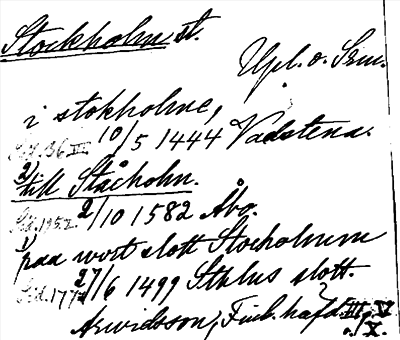 Stockholm st.
Upl. o. Söm.
i stokholme,
10/5 1444 Vadstena.
2) till Ståcholn.
2/10 1582 Åbo.
1) paa wort slott Stocholmm
27/6 1499 Sthlus slott.
Arwidsson, Finl. häfd. III, V
o. X.